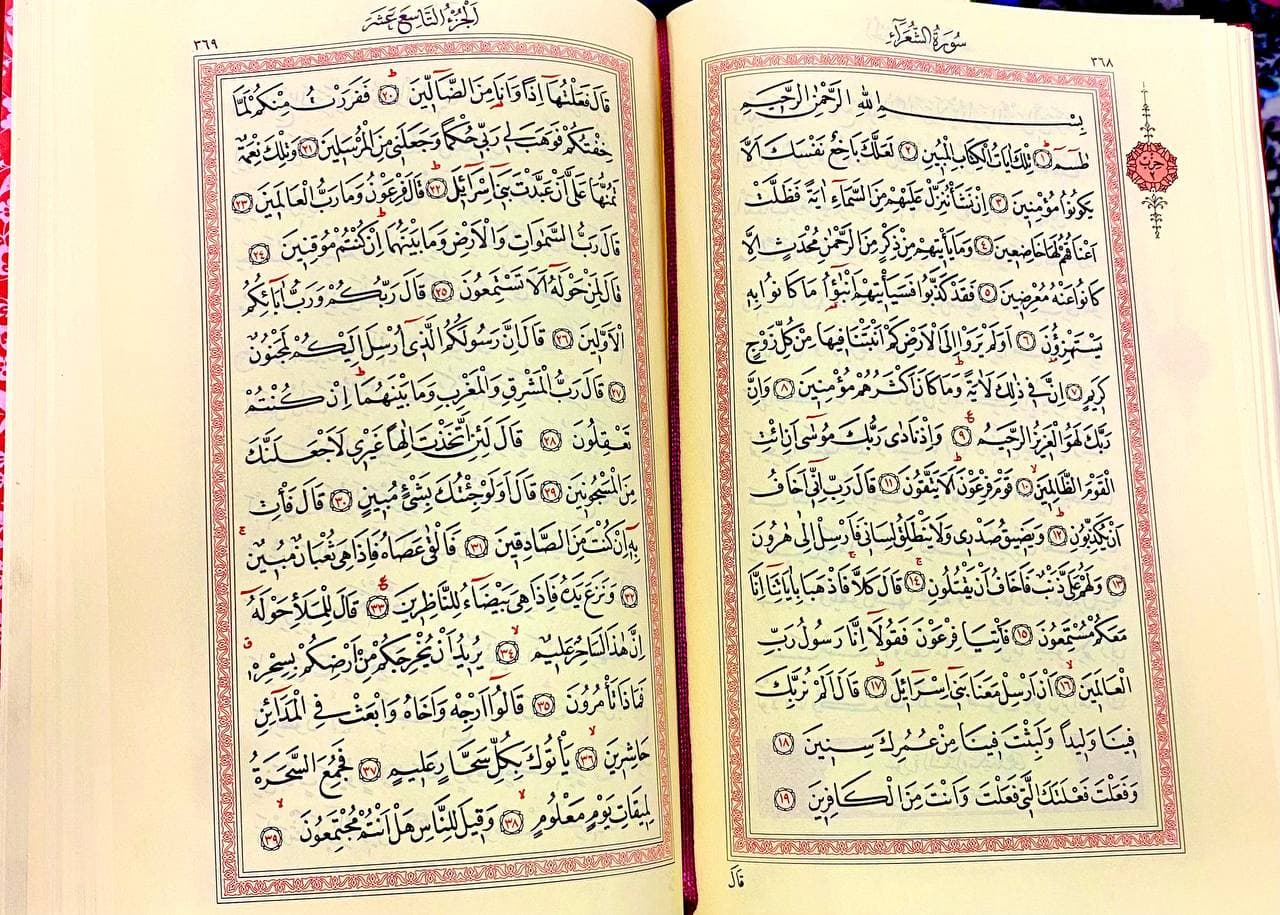 سُورَةُ الشُّعَرَآءِ
٣٦٨
بِسْمِ اللّٰهِ الرَّحْمٰنِ الرَّحٖيمِ
طٰسٓمٓ ﴿١﴾ تِلْكَ اٰيَاتُ الْكِتَابِ الْمُبٖينِ ﴿٢﴾ لَعَلَّكَ بَاخِعٌ نَفْسَكَ اَلَّا
يَكُونُوا مُؤْمِنٖينَ ﴿٣﴾ اِنْ نَشَأْ نُنَزِّلْ عَلَيْهِمْ مِنَ السَّمَٓاءِ اٰيَةً فَظَلَّتْ
اَعْنَاقُهُمْ لَهَا خَاضِعٖينَ ﴿٤﴾ وَمَا يَأْتٖيهِمْ مِنْ ذِكْرٍ مِنَ الرَّحْمٰنِ مُحْدَثٍ اِلَّا
كَانُوا عَنْهُ مُعْرِضٖينَ ﴿٥﴾ فَقَدْ كَذَّبُوا فَسَيَأْتٖيهِمْ اَنْبٰٓؤُ۬ا مَا كَانُوا بِهٖ
يَسْتَهْزِؤُ۫نَ ﴿٦﴾ اَوَلَمْ يَرَوْا اِلَى الْاَرْضِ كَمْ اَنْبَتْنَا فٖيهَا مِنْ كُلِّ زَوْجٍ
كَرٖيمٍ ﴿٧﴾ اِنَّ فٖي ذٰلِكَ لَاٰيَةً وَمَا كَانَ اَكْثَرُهُمْ مُؤْمِنٖينَ ﴿٨﴾ وَاِنَّ
رَبَّكَ لَهُوَ الْعَزٖيزُ الرَّحٖيمُ ﴿٩﴾ وَاِذْ نَادٰى رَبُّكَ مُوسٰٓى اَنِ ائْتِ
الْقَوْمَ الظَّالِمٖينَ ﴿١٠﴾ قَوْمَ فِرْعَوْنَ اَلَا يَتَّقُونَ ﴿١١﴾ قَالَ رَبِّ اِنّٖٓي اَخَافُ
اَنْ يُكَذِّبُونِ ﴿١٢﴾ وَيَضٖيقُ صَدْرٖي وَلَا يَنْطَلِقُ لِسَانٖي فَاَرْسِلْ اِلٰى هٰرُونَ
﴿١٣﴾ وَلَهُمْ عَلَيَّ ذَنْبٌ فَاَخَافُ اَنْ يَقْتُلُونِ ﴿١٤﴾ قَالَ كَلَّا فَاذْهَبَا بِاٰيَاتِنَٓا اِنَّا
مَعَكُمْ مُسْتَمِعُونَ ﴿١٥﴾ فَأْتِيَا فِرْعَوْنَ فَقُولَٓا اِنَّا رَسُولُ رَبِّ
الْعَالَمٖينَ ﴿١٦﴾ اَنْ اَرْسِلْ مَعَنَا بَنٖٓي اِسْرَٓائٖلَ ﴿١٧﴾ قَالَ اَلَمْ نُرَبِّكَ
فٖينَا وَلٖيداً وَلَبِثْتَ فٖينَا مِنْ عُمُرِكَ سِنٖينَ ﴿١٨﴾
وَفَعَلْتَ فَعْلَتَكَ الَّتٖي فَعَلْتَ وَاَنْتَ مِنَ الْكَافِرٖينَ ﴿١٩﴾
قَالَ
حزب
٢
اَلْجُزْءُ التَّاسِعَ عَشَرَ
٣٦٩
قَالَ فَعَلْتُهَٓا اِذاً وَاَنَا۬ مِنَ الضَّٓالّٖينَ ﴿٢٠﴾ فَفَرَرْتُ مِنْكُمْ لَمَّا
خِفْتُكُمْ فَوَهَبَ لٖي رَبّٖي حُكْماً وَجَعَلَنٖي مِنَ الْمُرْسَلٖينَ ﴿٢١﴾ وَتِلْكَ نِعْمَةٌ
تَمُنُّهَا عَلَيَّ اَنْ عَبَّدْتَ بَنٖٓي اِسْرَٓائٖلَ ﴿٢٢﴾ قَالَ فِرْعَوْنُ وَمَا رَبُّ الْعَالَمٖينَ ﴿٢٣﴾
قَالَ رَبُّ السَّمٰوَاتِ وَالْاَرْضِ وَمَا بَيْنَهُمَا اِنْ كُنْتُمْ مُوقِنٖينَ ﴿٢٤﴾
قَالَ لِمَنْ حَوْلَهُٓ اَلَا تَسْتَمِعُونَ ﴿٢٥﴾ قَالَ رَبُّكُمْ وَرَبُّ اٰبَٓائِكُمُ
الْاَوَّلٖينَ ﴿٢٦﴾ قَالَ اِنَّ رَسُولَكُمُ الَّذٖٓي اُرْسِلَ اِلَيْكُمْ لَمَجْنُونٌ
﴿٢٧﴾ قَالَ رَبُّ الْمَشْرِقِ وَالْمَغْرِبِ وَمَا بَيْنَهُمَا اِنْ كُنْتُمْ
تَعْقِلُونَ ﴿٢٨﴾ قَالَ لَئِنِ اتَّخَذْتَ اِلٰهاً غَيْرٖي لَاَجْعَلَنَّكَ
مِنَ الْمَسْجُونٖينَ ﴿٢٩﴾ قَالَ اَوَلَوْ جِئْتُكَ بِشَيْءٍ مُبٖينٍ ﴿٣٠﴾ قَالَ فَأْتِ
بِهٖٓ اِنْ كُنْتَ مِنَ الصَّادِقٖينَ ﴿٣١﴾ فَاَلْقٰى عَصَاهُ فَاِذَا هِيَ ثُعْبَانٌ مُبٖينٌ
﴿٣٢﴾ وَنَزَعَ يَدَهُ فَاِذَا هِيَ بَيْضَٓاءُ لِلنَّاظِرٖينَ ﴿٣٣﴾ قَالَ لِلْمَلَأِ حَوْلَهُٓ
اِنَّ هٰذَا لَسَاحِرٌ عَلٖيمٌ ﴿٣٤﴾ يُرٖيدُ اَنْ يُخْرِجَكُمْ مِنْ اَرْضِكُمْ بِسِحْرِهٖ
فَمَاذَا تَأْمُرُونَ ﴿٣٥﴾ قَالُٓوا اَرْجِهْ وَاَخَاهُ وَابْعَثْ فِي الْمَدَٓائِنِ
حَاشِرٖينَ ﴿٣٦﴾ يَأْتُوكَ بِكُلِّ سَحَّارٍ عَلٖيمٍ ﴿٣٧﴾ فَجُمِعَ السَّحَرَةُ
لِمٖيقَاتِ يَوْمٍ مَعْلُومٍ ﴿٣٨﴾ وَقٖيلَ لِلنَّاسِ هَلْ اَنْتُمْ مُجْتَمِعُونَ ﴿٣٩﴾